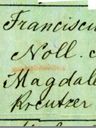 Franciscu
Noll. c
Magdale
Kreutzer